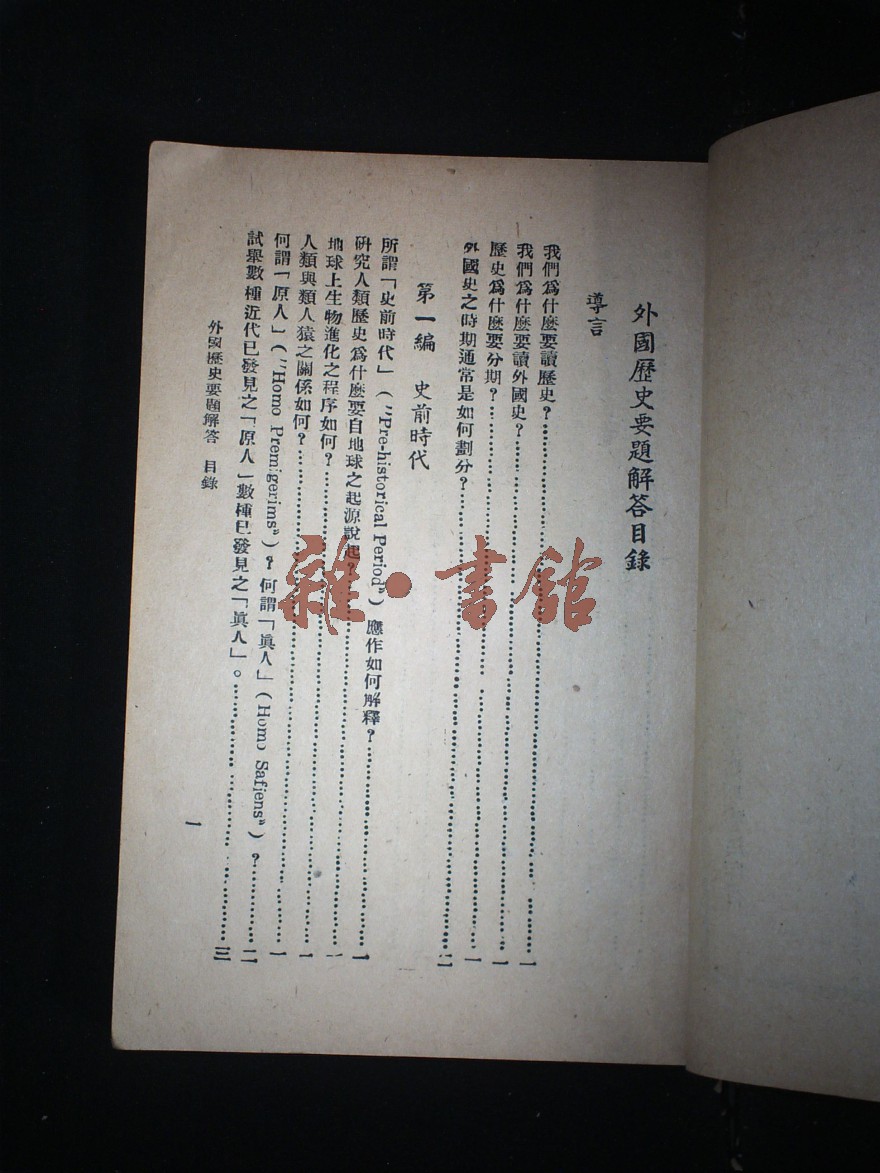 外國歷史要題解答目錄
導言
我們爲什麽要讀歷史？……一
我們爲什麽要讀外國史？……一
歷史爲什麽要分期？……一
外國史之時期通常是如何劃分？……二
第一編 史前時代
所謂「史前時代」（"Pre-historical Period"）應作如何解釋？……一
研究人類歷史爲什麽要自地球之起源說起？……一
地球上生物進化之程序如何？……一
人類與類人猿之關係如何？……一
何謂「原人」（"Homo Premigerims"）？何謂「眞人」（Homo Safiens"）？……二
試舉數種近代已發見之「原人」數種已發見之「眞人」。……三
外國歷史要題解答 目錄
一
雜·書館